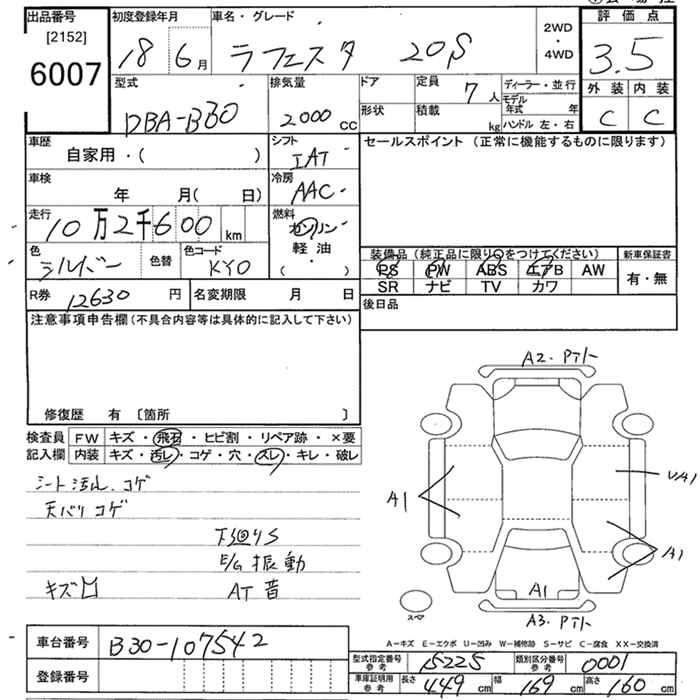 出品番号 初度登録年月 車名・グレード 評価点
[2152] 2WD
6007 18 6月 ラフェスタ 20S ・4WD 3.5
型式 排気量 ドア 定員 7人 ディーラー・並行 外装 内装
モデル年式 年
DBA-B30 2000cc 形状 積載 kg ハンドル 左・右 C C
車歴 シフト セールスポイント (正常に機能するものに限ります)
自家用・( ) IAT
車検 冷房
年 月(日) AAC
走行 燃料
10万2千600km ガソリン
軽油
・
( )
色 色替 色コード
シルバー KY0
装備品(純正品に限り○をつけてください) 新車保証書
PS PW ABS エアB AW 有・無
SR ナビ TV カワ
R券 12630円 名変期限 月 日 後日品
注意事項申告欄(不具合内容等は具体的に記入して下さい)
修復歴 有 〔箇所 〕
検査員 FW キズ・飛石・ヒビ割・リペア跡・×要
記入欄 内装 キズ・汚レ・コゲ・穴・スレ・キレ・破レ
シート汚レ.コゲ
天バリコゲ
下廻りS
E/G 振動
キズ凹 AT 音
A2.PTト
A1
UA1
A1
A1
スペア
A3.PTト
A-キズ E-エクボ U-凹み W-補修跡 S-サビ C-腐食 XX-交換済
車台番号 B30-107542
登録番号
型式指定番号参考 15225 類別区分番号参考 0001
車庫証明用参考 長さ 449cm 幅 169cm 高さ 160cm